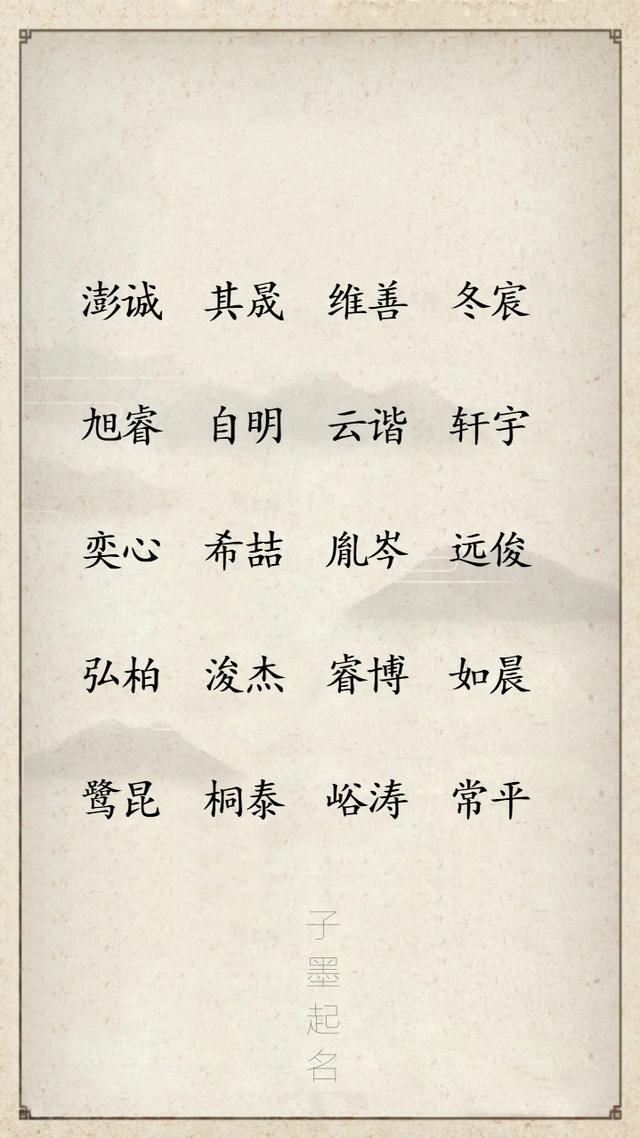 澎诚 其晟 维善 冬宸
旭睿 自明 云谐 轩宇
奕心 希喆 胤岑 远俊
弘柏 浚杰 睿博 如晨
鹭昆 桐泰 峪涛 常平
子墨起名